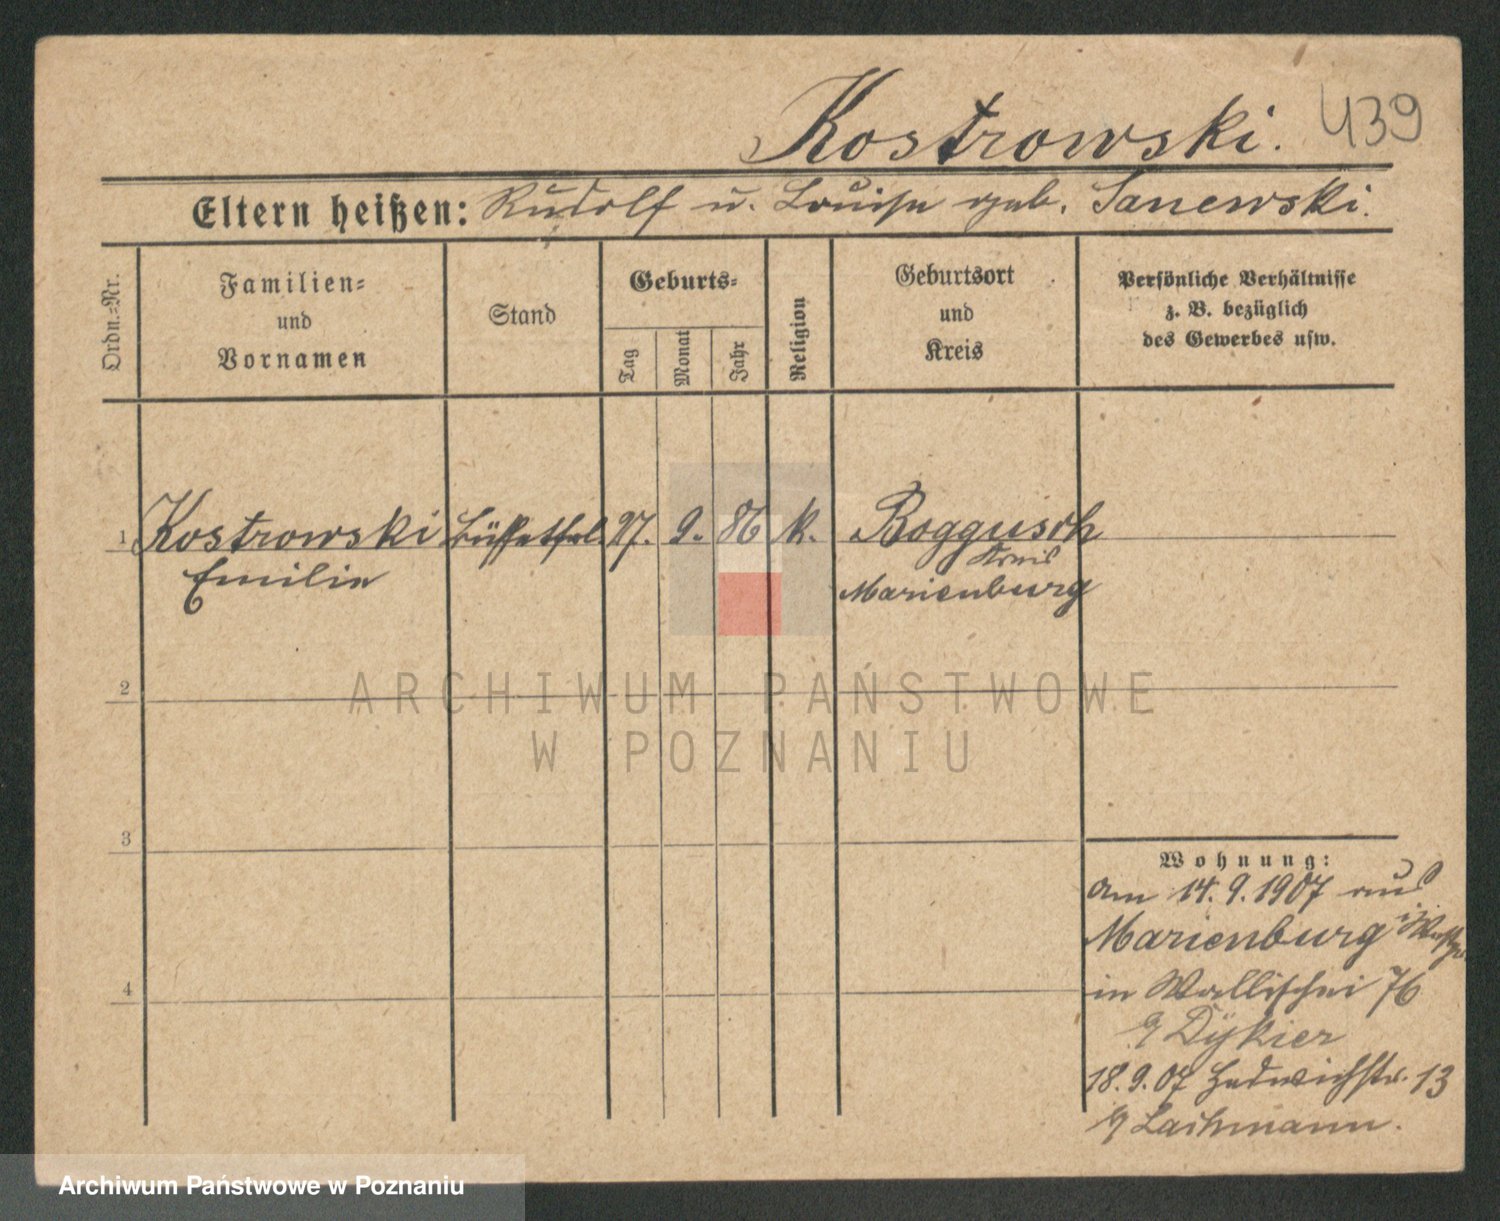 Kostrowski. 439
Eltern heißen: Rudolf u. Louise geb. Sanewski.
Ordn.=Nr.
Familien=
und
Vornamen
Stand
Geburts=
Tag
Monat
Jahr
Religion
Geburtsort
und
Kreis
Persönliche Verhältnisse
z. B. bezüglich
des Gewerbes usw.
1 Kostrowski Büffetfrl. 27. 9. 86 k. Boggusch
Kreis
Emilie Marienburg
2
3
4
Wohnung:
am 14.9.1907 aus
Marienburg i/Westpr.
in Wallischei 76
b/ Dykier
18.9.07 Hedwichstr. 13
b/ Lachmann.
ARCHIWUM PAŃSTWOWE
W POZNANIU
Archiwum Państwowe w Poznaniu